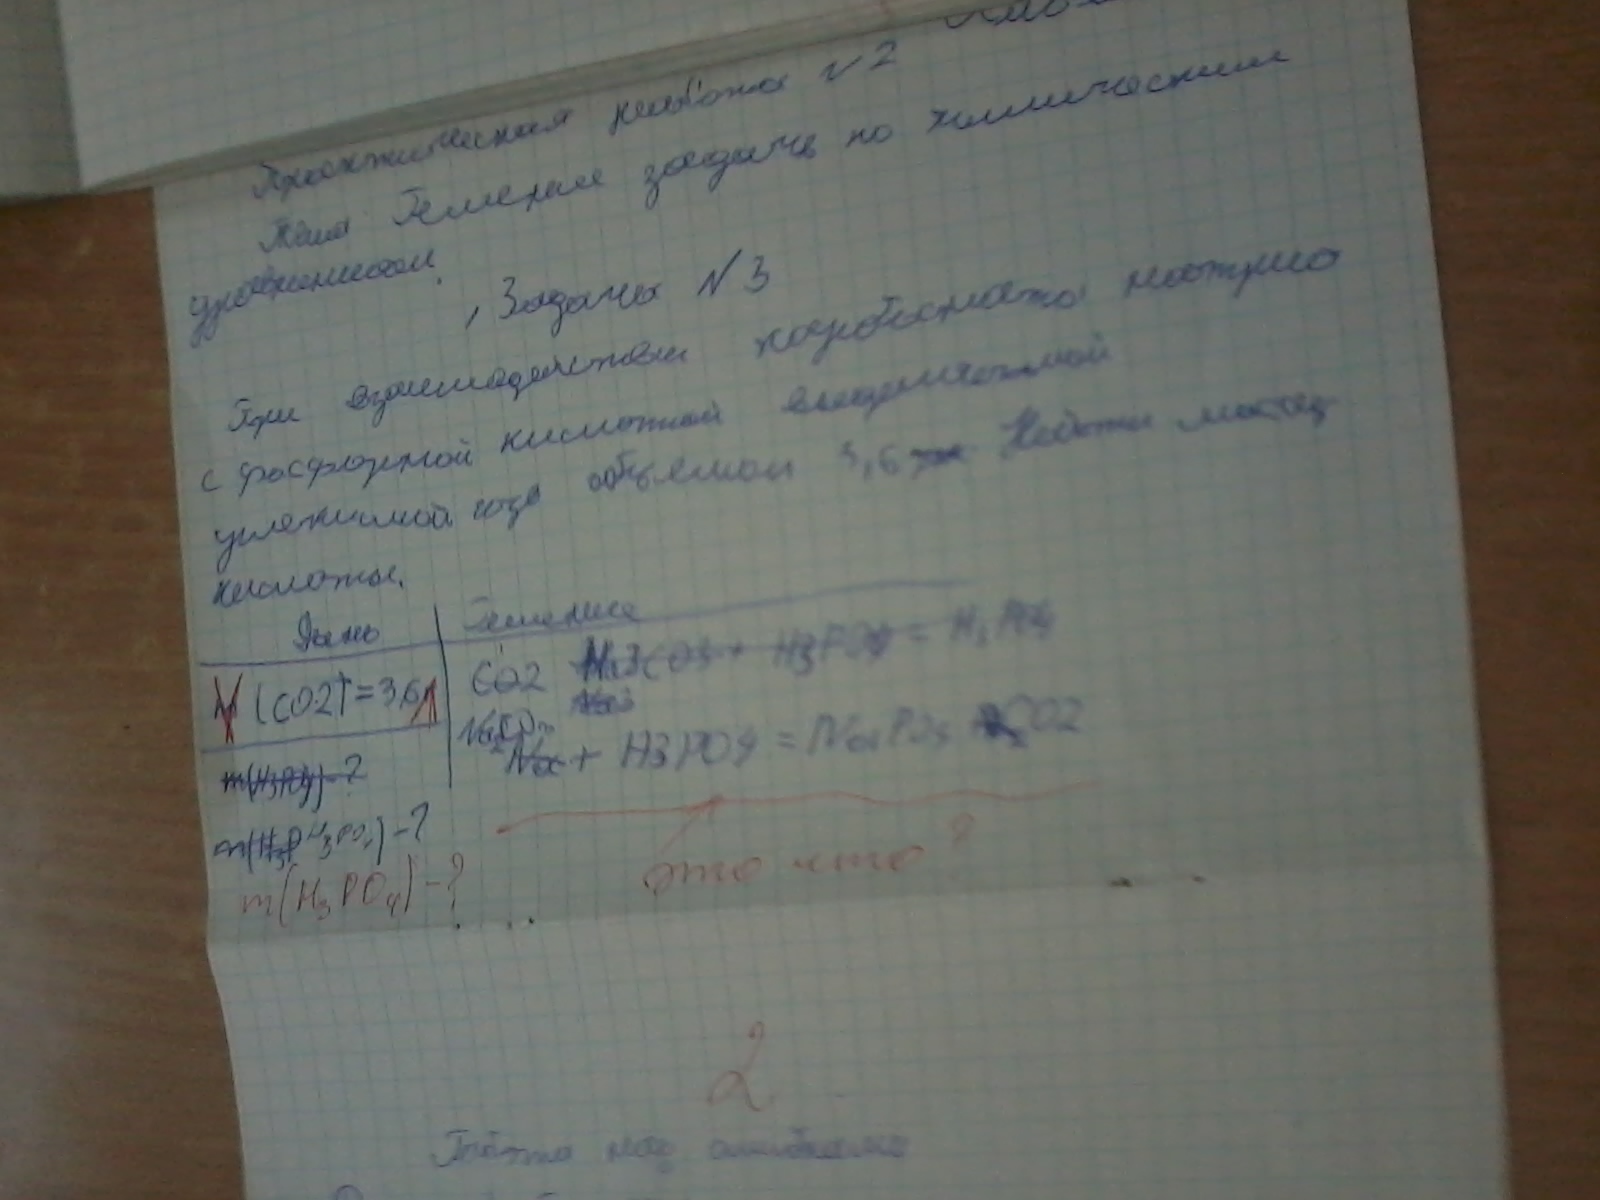 Практическая работа N2
Тема Решение задачь по химическим
уравнениям.
Задача N3
При взаимодействии карбоната натрия
с фосфорной кислотой
углекислый газ объёмом 3,6 Найти массу
кислоты.
Дано Решение
V (CO2) = 3,6л CO2 Na3CO3 + H3PO4 =
m(H3PO4) - ? Na + H3PO4 = Na PO4 CO2
m(H3PO4) - ?
m(H3PO4) - ? это что?
2
Работа над ошибками